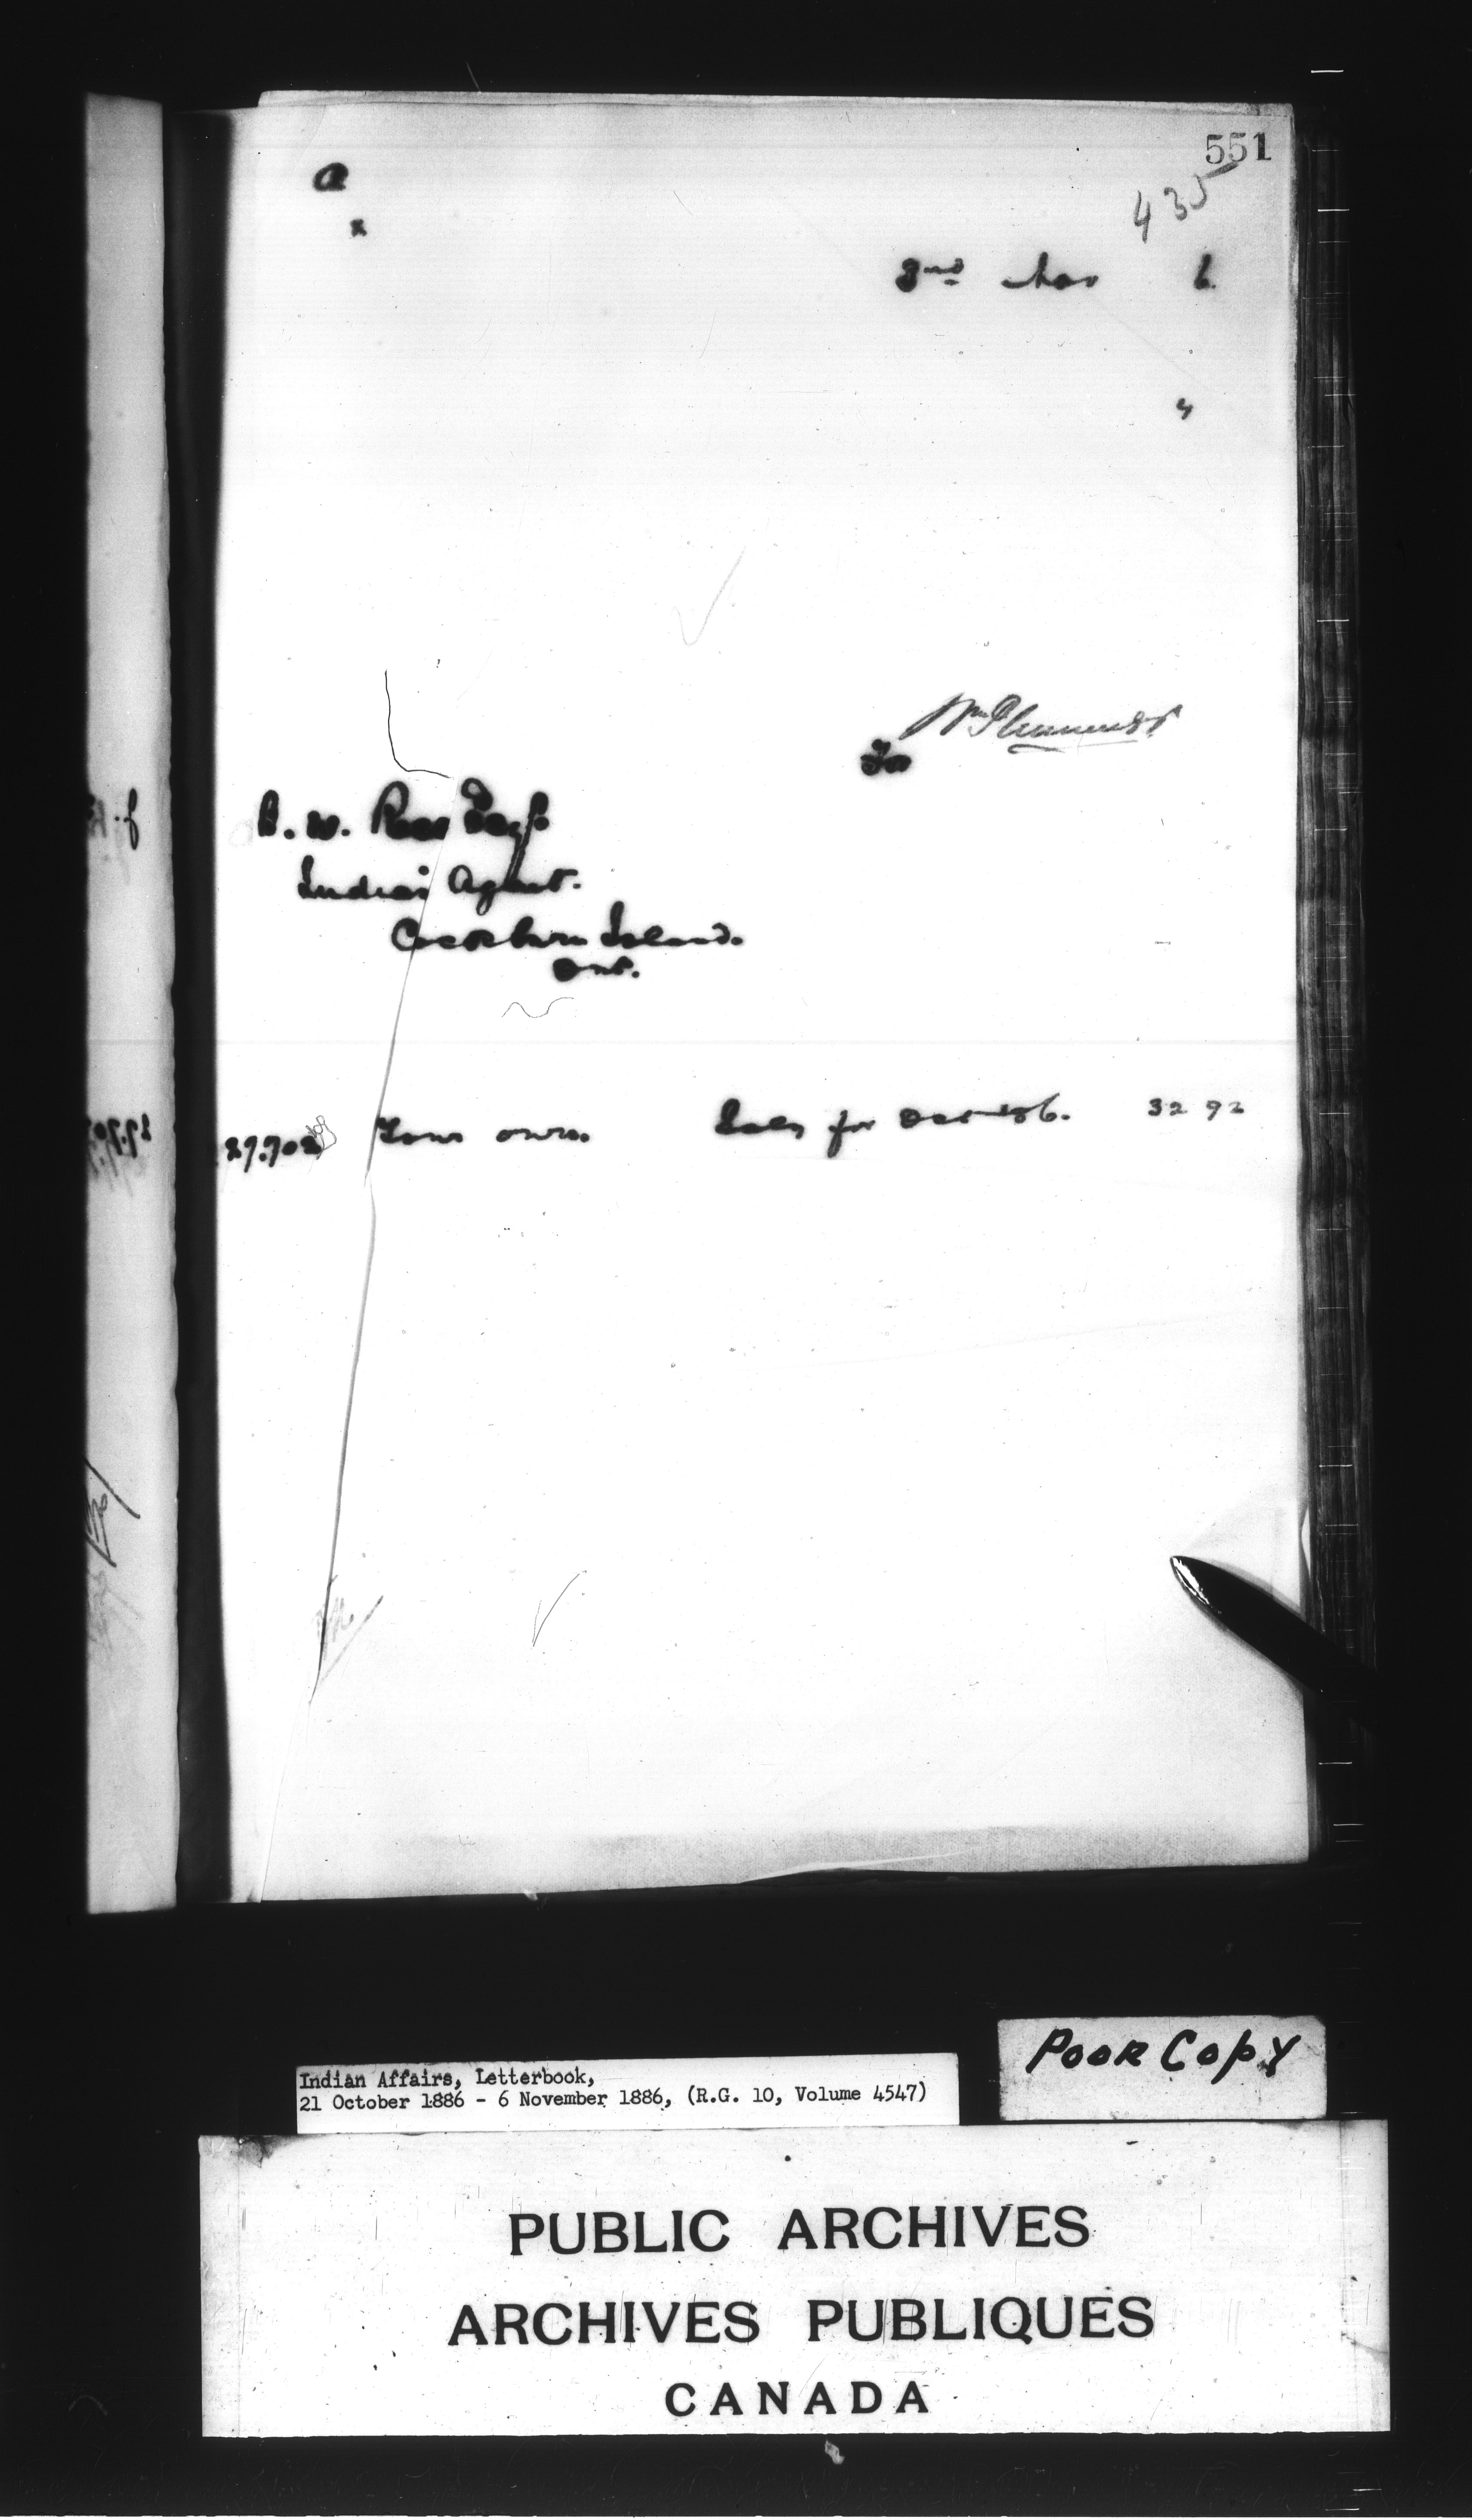 551
a
435
x
3rd Nov 6
"
Wm Plummer
For
B. W. Ross Esq.
Indian Agent.
Cockburn Island.
Ont.
27.702 Your own. Saly for Oct '86. 32 92
Poor Copy
Indian Affairs, Letterbook,
21 October 1886 - 6 November 1886, (R.G. 10, Volume 4547)
PUBLIC ARCHIVES
ARCHIVES PUBLIQUES
CANADA